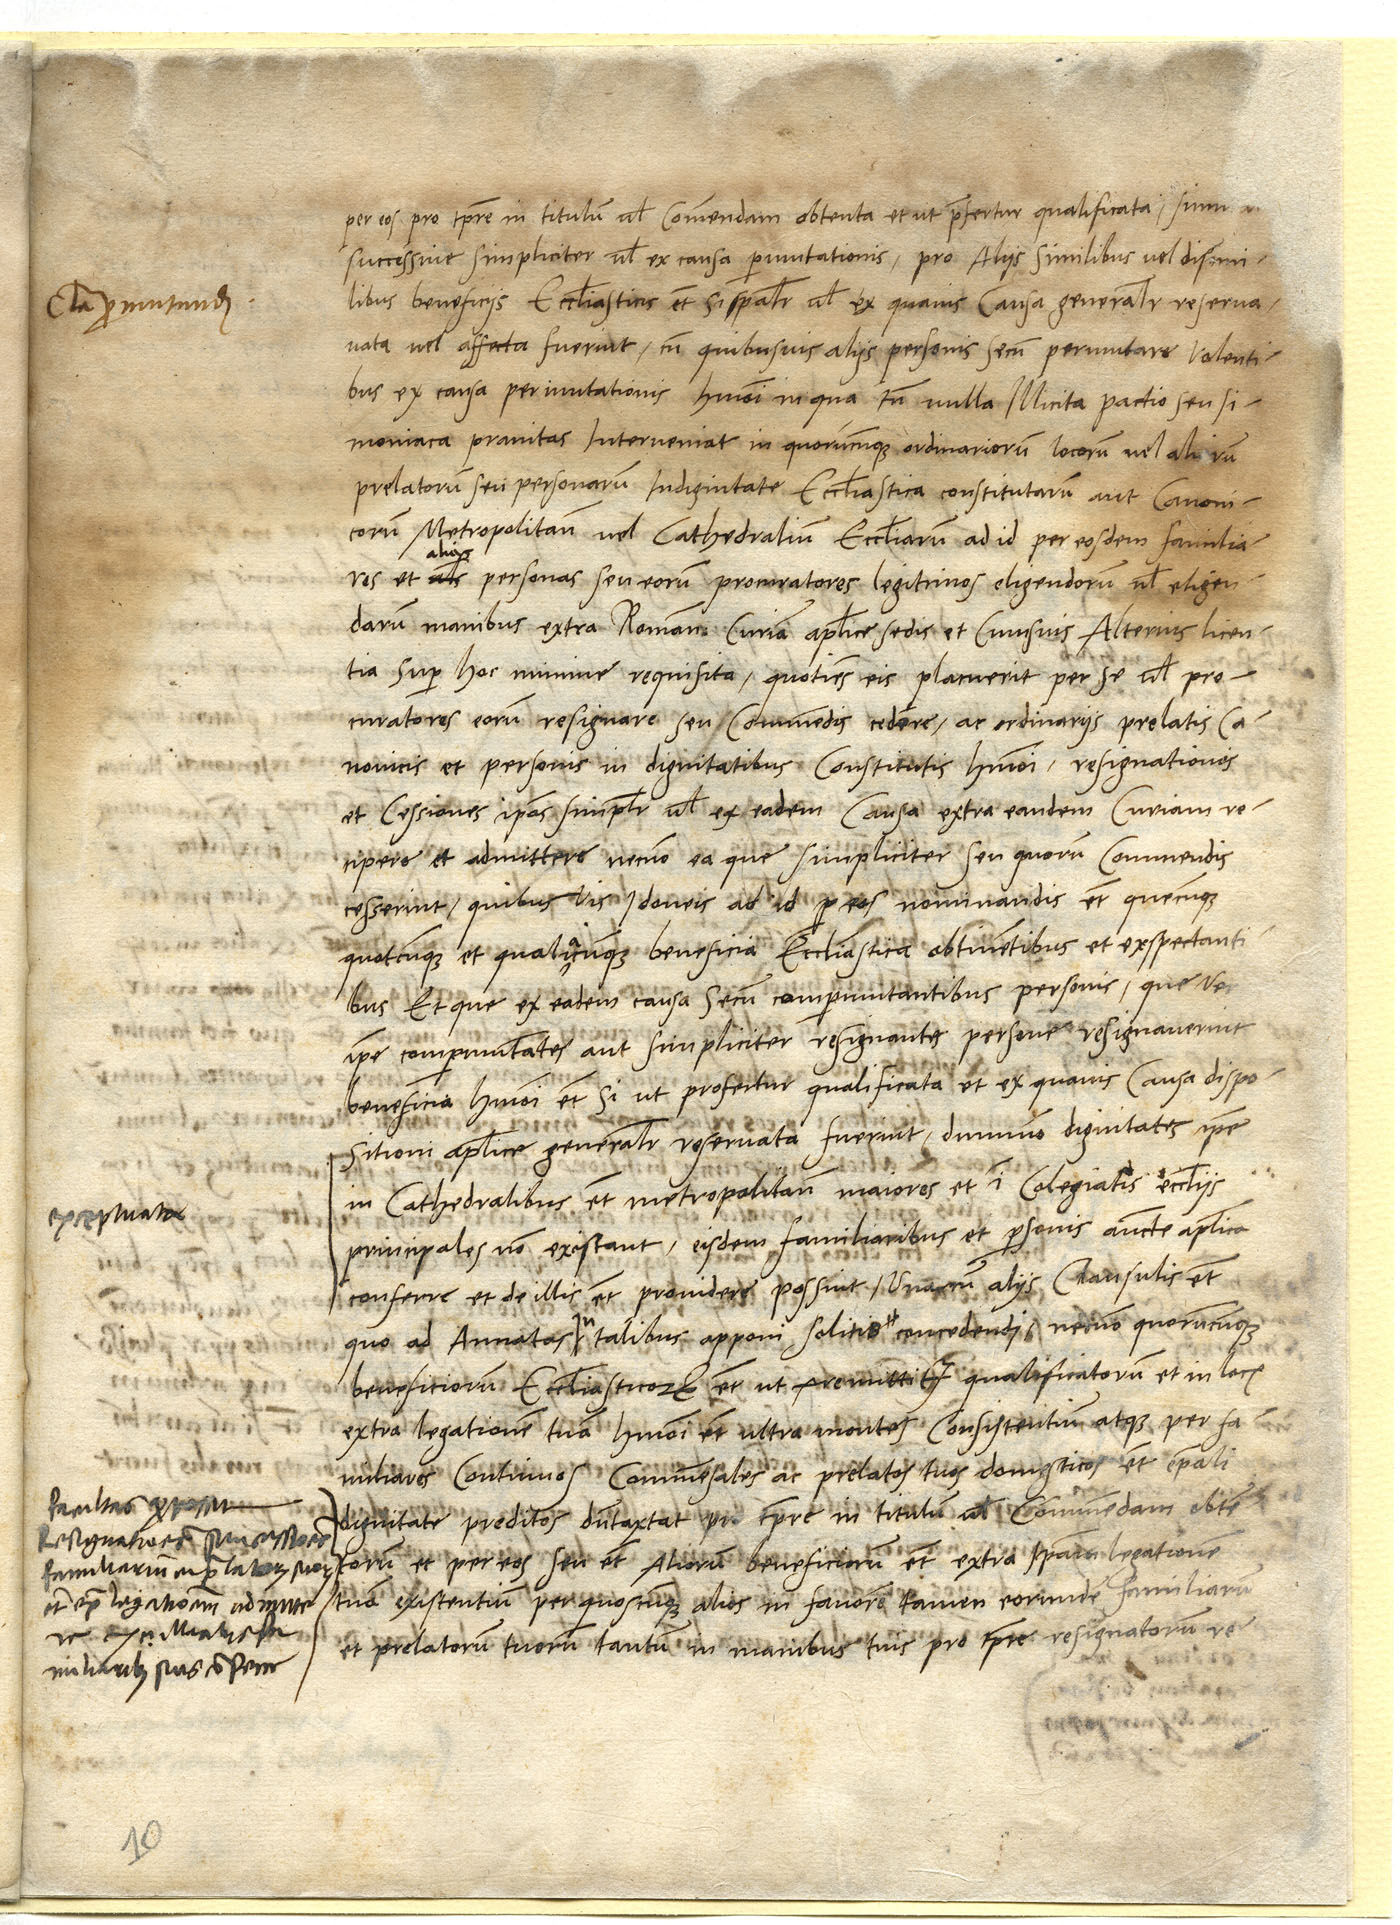 per eos pro tp̄re in titulū ul̄ Com̄endam obtenta et ut p̄fertur qualificata, simu
successiue simpliciter ul̄ ex causa p̄mutationis, pro Alijs similibus uel dissimi-
Cl̄a p̄mutand
libus beneficijs Eccl̄iasticis et̄ si sp̄al̄r ul̄ ex quauis Causa general̄r reserua,
uata uel affecta fuerint, cū quibusuis alijs personis secū permutare Volenti-
bus ex causa permutationis hmōi in qua tn̄ nulla Illicita pactio seu si-
moniaca prauitas Interueniat in quorūcunqȝ ordinariorū locorū uel aliorū
prelatorū seu personarū Indignitate Eccl̄iastica constitutarū aut Canoni-
corū Metropolitan̄ uel Cathedraliū Eccl̄iarū ad id per eosdem familia-
alias
res et al̄s personas seu eorū procuratores legitimos eligendorū ul̄ eligen-
darū manibus extra Roman. Curiā ap̄lice sedis et Cuiusuis Alterius licen-
tia sup̄ hoc minime requisita, quotiēs eis placuerit per se ul̄ pro-
curatores eorū resignare seu Com̄endis cedere, ac ordinarijs prelatis Ca-
nonicis et personis in dignitatibus Constitutis hmōi, resignationes
et Cessiones ip̄as simpl̄r ul̄ ex eadem Causa extra eandem Curiam re-
cipere et admittere necnō ea que simpliciter seu quorū Commendis
cesserint, quibus Vis Idoneis ad id p̄ eos nominandis et̄ quēcunqȝ
quotcūqȝ et qualiacūqȝ beneficia Eccl̄iastica obtinētibus et exspectanti
bus Et que ex eadem causa secū comp̄mutantibus personis, que Ve
ip̄e comp̄mutātes aut simpliciter resignantes persone resignauerint
beneficia hmōi et̄ si ut profertur qualificata et ex quauis Causa dispo-
sitioni ap̄lice general̄r reseruata fuerint, dummō dignitates ip̄e
in Cathedralibus et̄ metropolitan̄ maiores et ī Colegiatis eccl̄ijs
exceptuata
principales nō existant, eisdem familiaribus et p̄sonis aucte ap̄lica
conferre et de illis et̄ prouidere possint, Vnacū alijs Clausulis et̄
quo ad Annatas in talibus apponi solitis concedendi, necnō quorūcūqȝ
beneficiorū Eccl̄iasticoꝝ et̄ ut premittitur qualificatorū et in locis
extra legationē tuā hmōi et̄ ultra montes Consistentiū atqȝ per fa-
miliares Continuos Commēsales ac prelatos tuos domesticos et̄ ep̄ali
dignitate preditos dūtaxtat pro tp̄re in titulū ul̄ Com̄endam obtē
torū et per eos seu et̄ Aliorū beneficiorū et̄ extra ip̄am legationē
tuā existentiū per quoscūqȝ alios in fauorē tamen eorundē familiarū
et prelatorū tuorū tantū in manibus tuis pro tp̄re resignatorū re
facultas
Resignationes
familiariū
et̄ legationem admitte
10